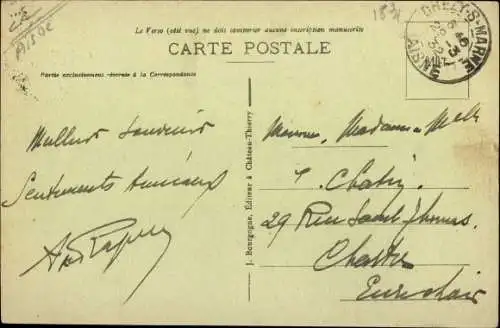 AISNE
Le Verso (côté vue) ne doit comporter aucune inscription manuscrite
CARTE POSTALE
Partie exclusivement réservée à la Correspondance
CRÉZY-S-MARNE
AISNE
Meilleur souvenir
Sentiments Amicaux
J. Bourgogne, Éditeur à Château-Thierry
Monsieur, Madame, Melle
29 Rue Saint Thomas
Chartres
Eure & Loir